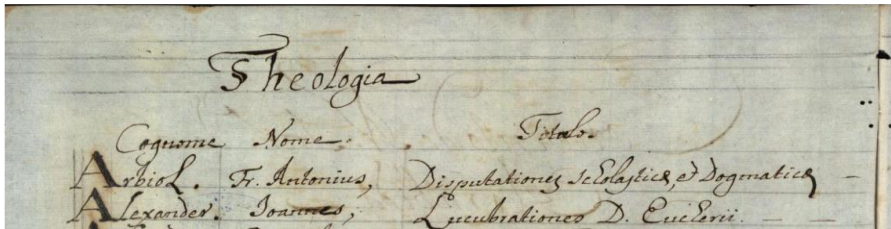 Theologia
Cognome Nome. Titulo.
Arbiol. Fr. Antonius, Disputationes scholasticæ, et Dogmaticæ —
Alexander. Joannes, Lucubrationes D. Eucherii. — —